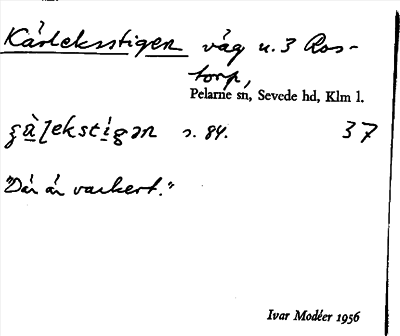 Kärleksstigen väg u. 3 Ros-
torp,
Pelarne sn, Sevede hd, Klm l.
s. 84. 37
"Där är vackert."
Ivar Modéer 1956